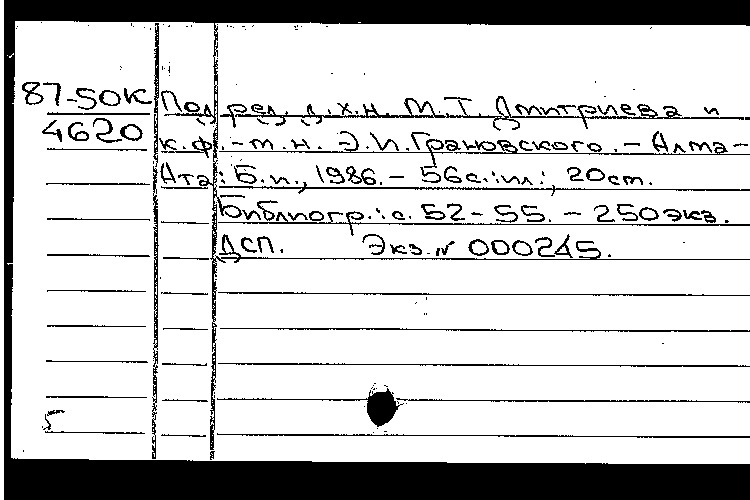 87-50К Под ред. д.х.н. М.Т. Дмитриева и
4620 к.ф.-м.н. Э.И. Грановского. - Алма-
Ата: Б.и., 1986. - 56с.: ил.; 20 см.
Библиогр.: с. 52-55. - 250 экз.
ДСП. Экз. № 000245.
5